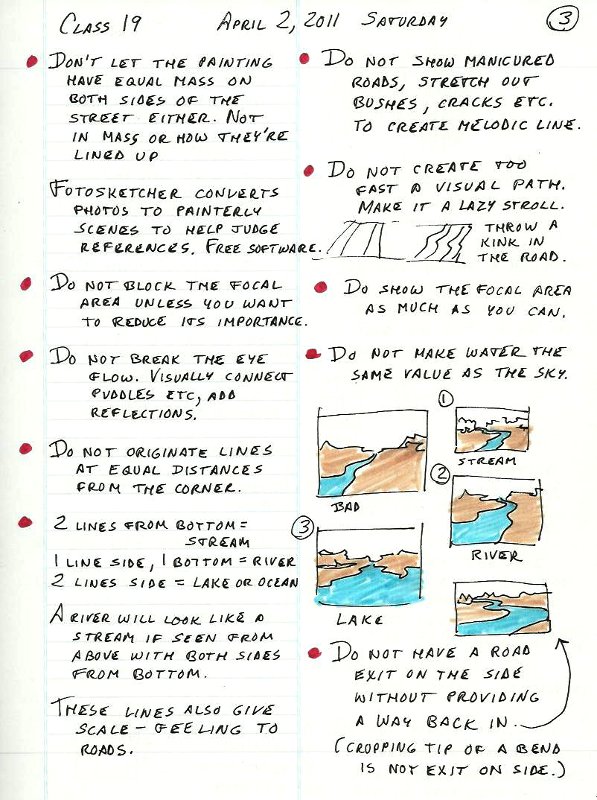 CLASS 19 APRIL 2, 2011 SATURDAY 3
DON'T LET THE PAINTING
HAVE EQUAL MASS ON
BOTH SIDES OF THE
STREET EITHER. NOT
IN MASS OR HOW THEY'RE
LINED UP
FOTOSKETCHER CONVERTS
PHOTOS TO PAINTERLY
SCENES TO HELP JUDGE
REFERENCES. FREE SOFTWARE.
DO NOT BLOCK THE FOCAL
AREA UNLESS YOU WANT
TO REDUCE ITS IMPORTANCE.
DO NOT BREAK THE EYE
FLOW. VISUALLY CONNECT
PUDDLES ETC, ADD
REFLECTIONS.
DO NOT ORIGINATE LINES
AT EQUAL DISTANCES
FROM THE CORNER.
2 LINES FROM BOTTOM =
STREAM
1 LINE SIDE, 1 BOTTOM = RIVER
2 LINES SIDE = LAKE OR OCEAN
A RIVER WILL LOOK LIKE A
STREAM IF SEEN FROM
ABOVE WITH BOTH SIDES
FROM BOTTOM.
THESE LINES ALSO GIVE
SCALE - FEELING TO
ROADS.
DO NOT SHOW MANICURED
ROADS, STRETCH OUT
BUSHES, CRACKS ETC.
TO CREATE MELODIC LINE.
DO NOT CREATE TOO
FAST A VISUAL PATH.
MAKE IT A LAZY STROLL.
THROW A
KINK IN
THE ROAD.
DO SHOW THE FOCAL AREA
AS MUCH AS YOU CAN.
DO NOT MAKE WATER THE
SAME VALUE AS THE SKY.
BAD
1
STREAM
2
RIVER
3
LAKE
DO NOT HAVE A ROAD
EXIT ON THE SIDE
WITHOUT PROVIDING
A WAY BACK IN.
(CROPPING TIP OF A BEND
IS NOT EXIT ON SIDE.)